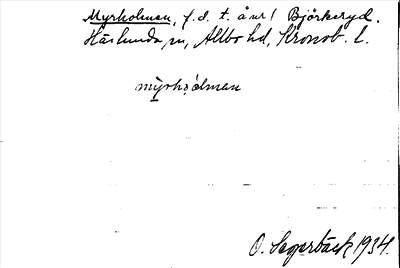 Myrholmen, f.d. t. å nr 1 Björkeryd.
Häslunda, sn, Allbo hd, Kronob. l.
myrhɔ́lman
O. Sagerbäck 1934.